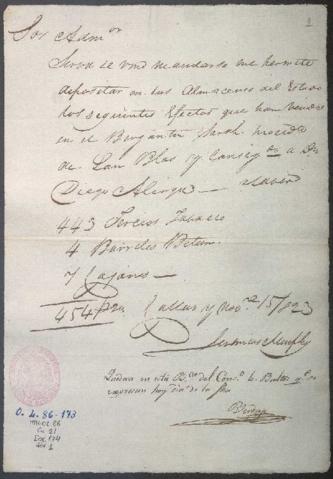 1
Sor Admor
Sirvase Vmd mandar se me permita
depositar en los Almacenes del Estado
los siguientes Efectos que han venido
en el Bergantin Sarah procedte
de San Blas y Consigdos a Dn
Diego Aliaga a saber
443 Tercios Tabaco
4 Barriles Betun
7 Cajones
454 Callao y Nove 15/823
Murphy
Quedan en esta del los Bultos qe
expresan hoy dia de la fha
O. L. 86-173